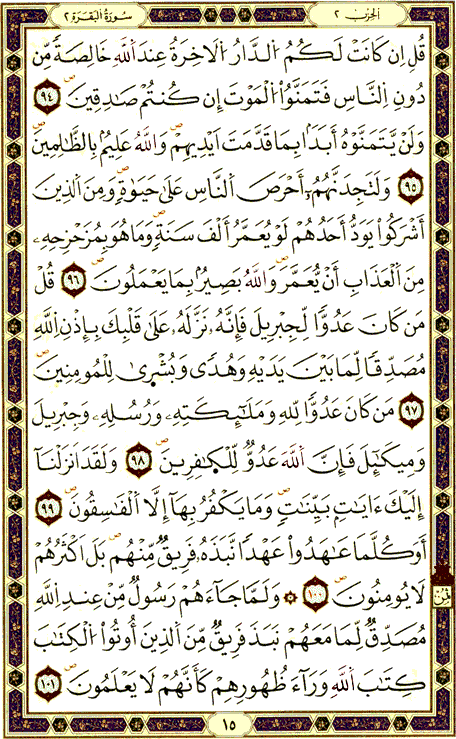 الحزب ٢
سورة البقرة ٢
قُلِ اِن كَانَتْ لَكُمُ اُلدَّارُ اُلَاخِرَةُ عِندَ اَللَّهِ خَالِصَةً مِّن
دُونِ اِلنَّاسِ فَتَمَنَّوُاْ اُلْمَوْتَ إِن كُنتُمْ صَادِقِينَۖ ٩٤
وَلَنْ يَّتَمَنَّوْهُ أَبَداَۢ بِمَا قَدَّمَتَ اَيْدِيهِمْۖ وَاللَّهُ عَلِيمُۢ بِالظَّالِمِينَۖ
٩٥ وَلَتَجِدَنَّهُمُۥٓ أَحْرَصَ اَلنَّاسِ عَلَىٰ حَيَوٰةٍۖ وَمِنَ اَلذِينَ
أَشْرَكُواْۖ يَوَدُّ أَحَدُهُمْ لَوْ يُعَمَّرُ أَلْفَ سَنَةٍۖ وَمَا هُوَ بِمُزَحْزِحِهِۦ
مِنَ اَلْعَذَابِ أَنْ يُّعَمَّرَۖ وَاللَّهُ بَصِيرُۢ بِمَا يَعْمَلُونَۖ ٩٦ قُلْ
مَن كَانَ عَدُوّاً لِّجِبْرِيلَ فَإِنَّهُۥ نَزَّلَهُۥ عَلَىٰ قَلْبِكَ بِإِذْنِ اِللَّهِ
مُصَدِّقاً لِّمَا بَيْنَ يَدَيْهِ وَهُدىً وَبُشْرَىٰ لِلْمُومِنِينَۖ
٩٧ مَن كَانَ عَدُوّاً لِّلهِ وَمَلَٰٓئِكَتِهِۦ وَرُسُلِهِۦ وَجِبْرِيلَ
وَمِيكَٰٓئِلَ فَإِنَّ اَللَّهَ عَدُوٌّ لِّلْكٰفِرِينَۖ ٩٨ وَلَقَدَ اَنزَلْنَآ
إِلَيْكَ ءَايَٰتِۢ بَيِّنَٰتٍۖ وَمَا يَكْفُرُ بِهَآ إِلَّا اَلْفَٰسِقُونَۖ ٩٩
أَوَكُلَّمَا عَٰهَدُواْ عَهْداً نَّبَذَهُۥ فَرِيقٌ مِّنْهُمۖ بَلَ اَكْثَرُهُمْ
لَا يُومِنُونَۖ ١٠٠ ۞ وَلَمَّا جَآءَهُمْ رَسُولٌ مِّنْ عِندِ اِللَّهِ
مُصَدِّقٌ لِّمَا مَعَهُمْ نَبَذَ فَرِيقٌ مِّنَ اَلذِينَ أُوتُواْ اُلْكِتَٰبَ
كِتَٰبَ اَللَّهِ وَرَآءَ ظُهُورِهِمْ كَأَنَّهُمْ لَا يَعْلَمُونَۖ ١٠١
ثمن
١٥